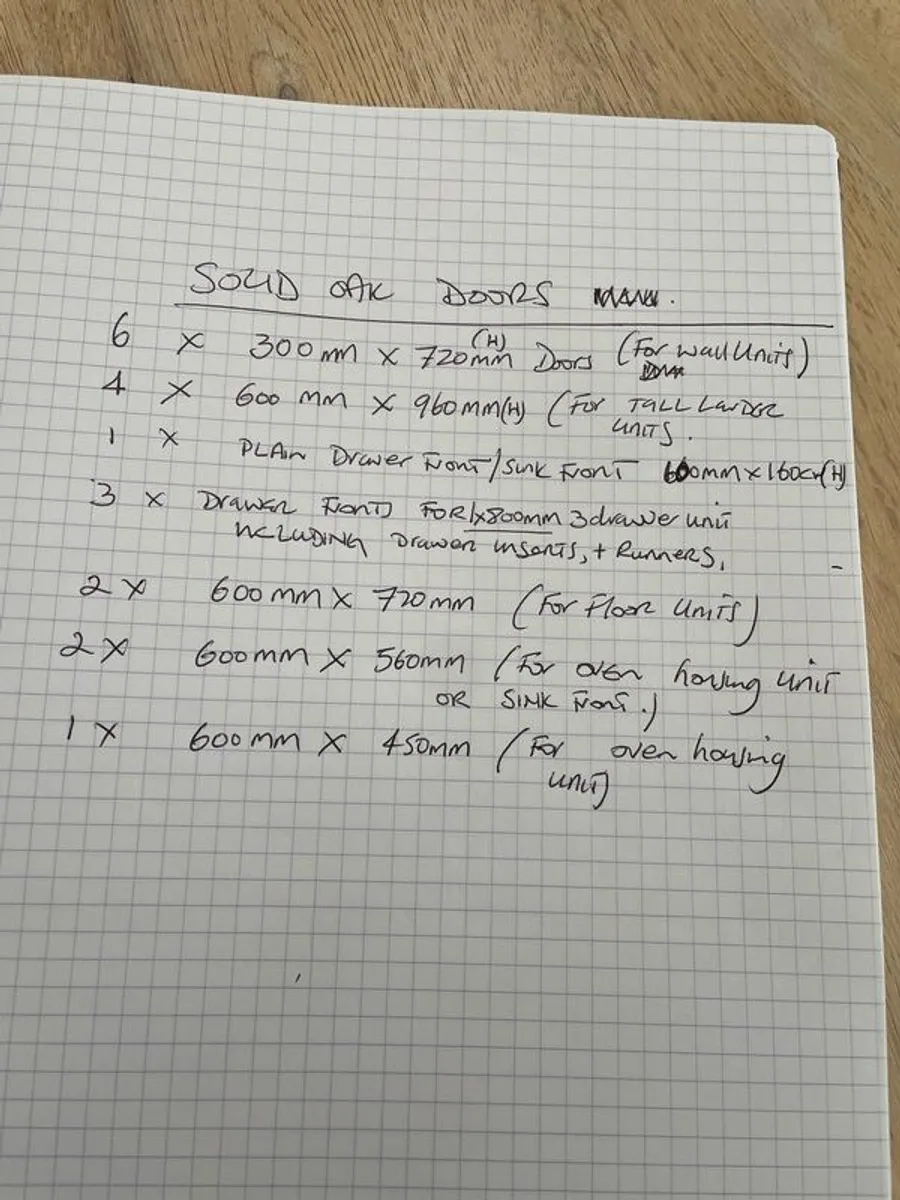 SOLID OAK DOORS
6 x 300mm x 720mm (H) Doors (For wall Units)
4 x 600 mm x 960mm(H) (For TALL LARDER
UNITS.
1 x PLAIN Drawer Front/Sink Front 600mm x 160cm(H)
3 x Drawer Fronts FOR 1x800mm 3 drawer unit
INCLUDING Drawer inserts, + Runners,
2 x 600mm x 720mm (For Floor Units)
2 x 600mm x 560mm (For oven housing unit
OR SINK Front.)
1 x 600mm x 450mm (For oven housing
unit)